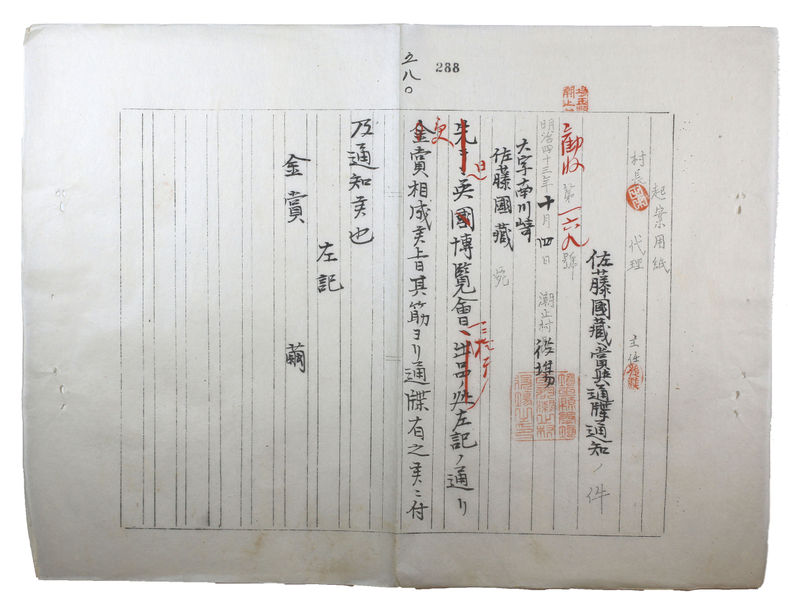 288
五八〇
起案用紙
村長 代理 主任
佐藤國藏賞與通牒通知ノ件
勧收第一六九號
明治四十三年十月四日 潮止村役場
大字南川崎
佐藤國藏 宛
先ニ日英國博覽會ニ出品ノ処左記ノ通リ
金賞相成候上旨其筋ヨリ通牒有之候ニ付
及通知候也
左記
金賞 繭